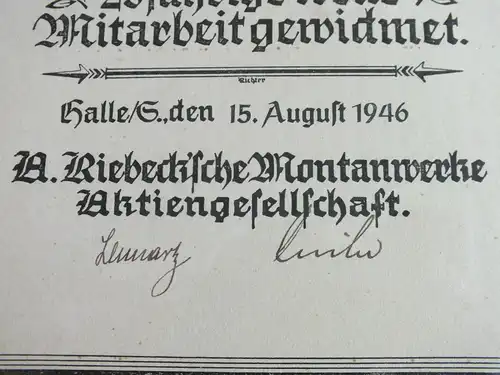 25jährige treue
Mitarbeit gewidmet.
Richter
Halle/S., den 15. August 1946
A. Riebeck'sche Montanwerke
Aktiengesellschaft.
Lennarz